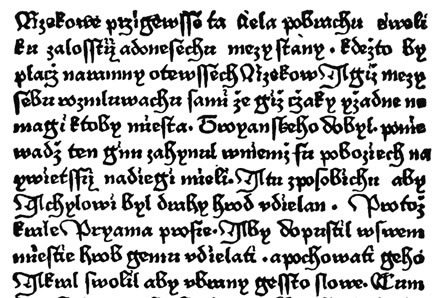 Rzekowe przigewsse ta tiela pobrachu swoli
ku zalostij adonesechu mezy stany . kdežto by
placz naramny otewssech Rzekow A giž mezy
sebu rozmluwachu sami že giž czaky yžadne ne
magi ktoby miesta . Troyanskeho dobyl . ponie
wadž ten ginu zahynul wniemž su poboziech na
ywietssij nadiegi mieli . A tu zposobichu aby
Achylowi byl druhy hrob vdielan . Protož
krale Pryama prosie . Aby dopustil wswem
miestie hrob gemu vdielati . apochowati geho
A kral swolil aby vbrany gessto slowe .